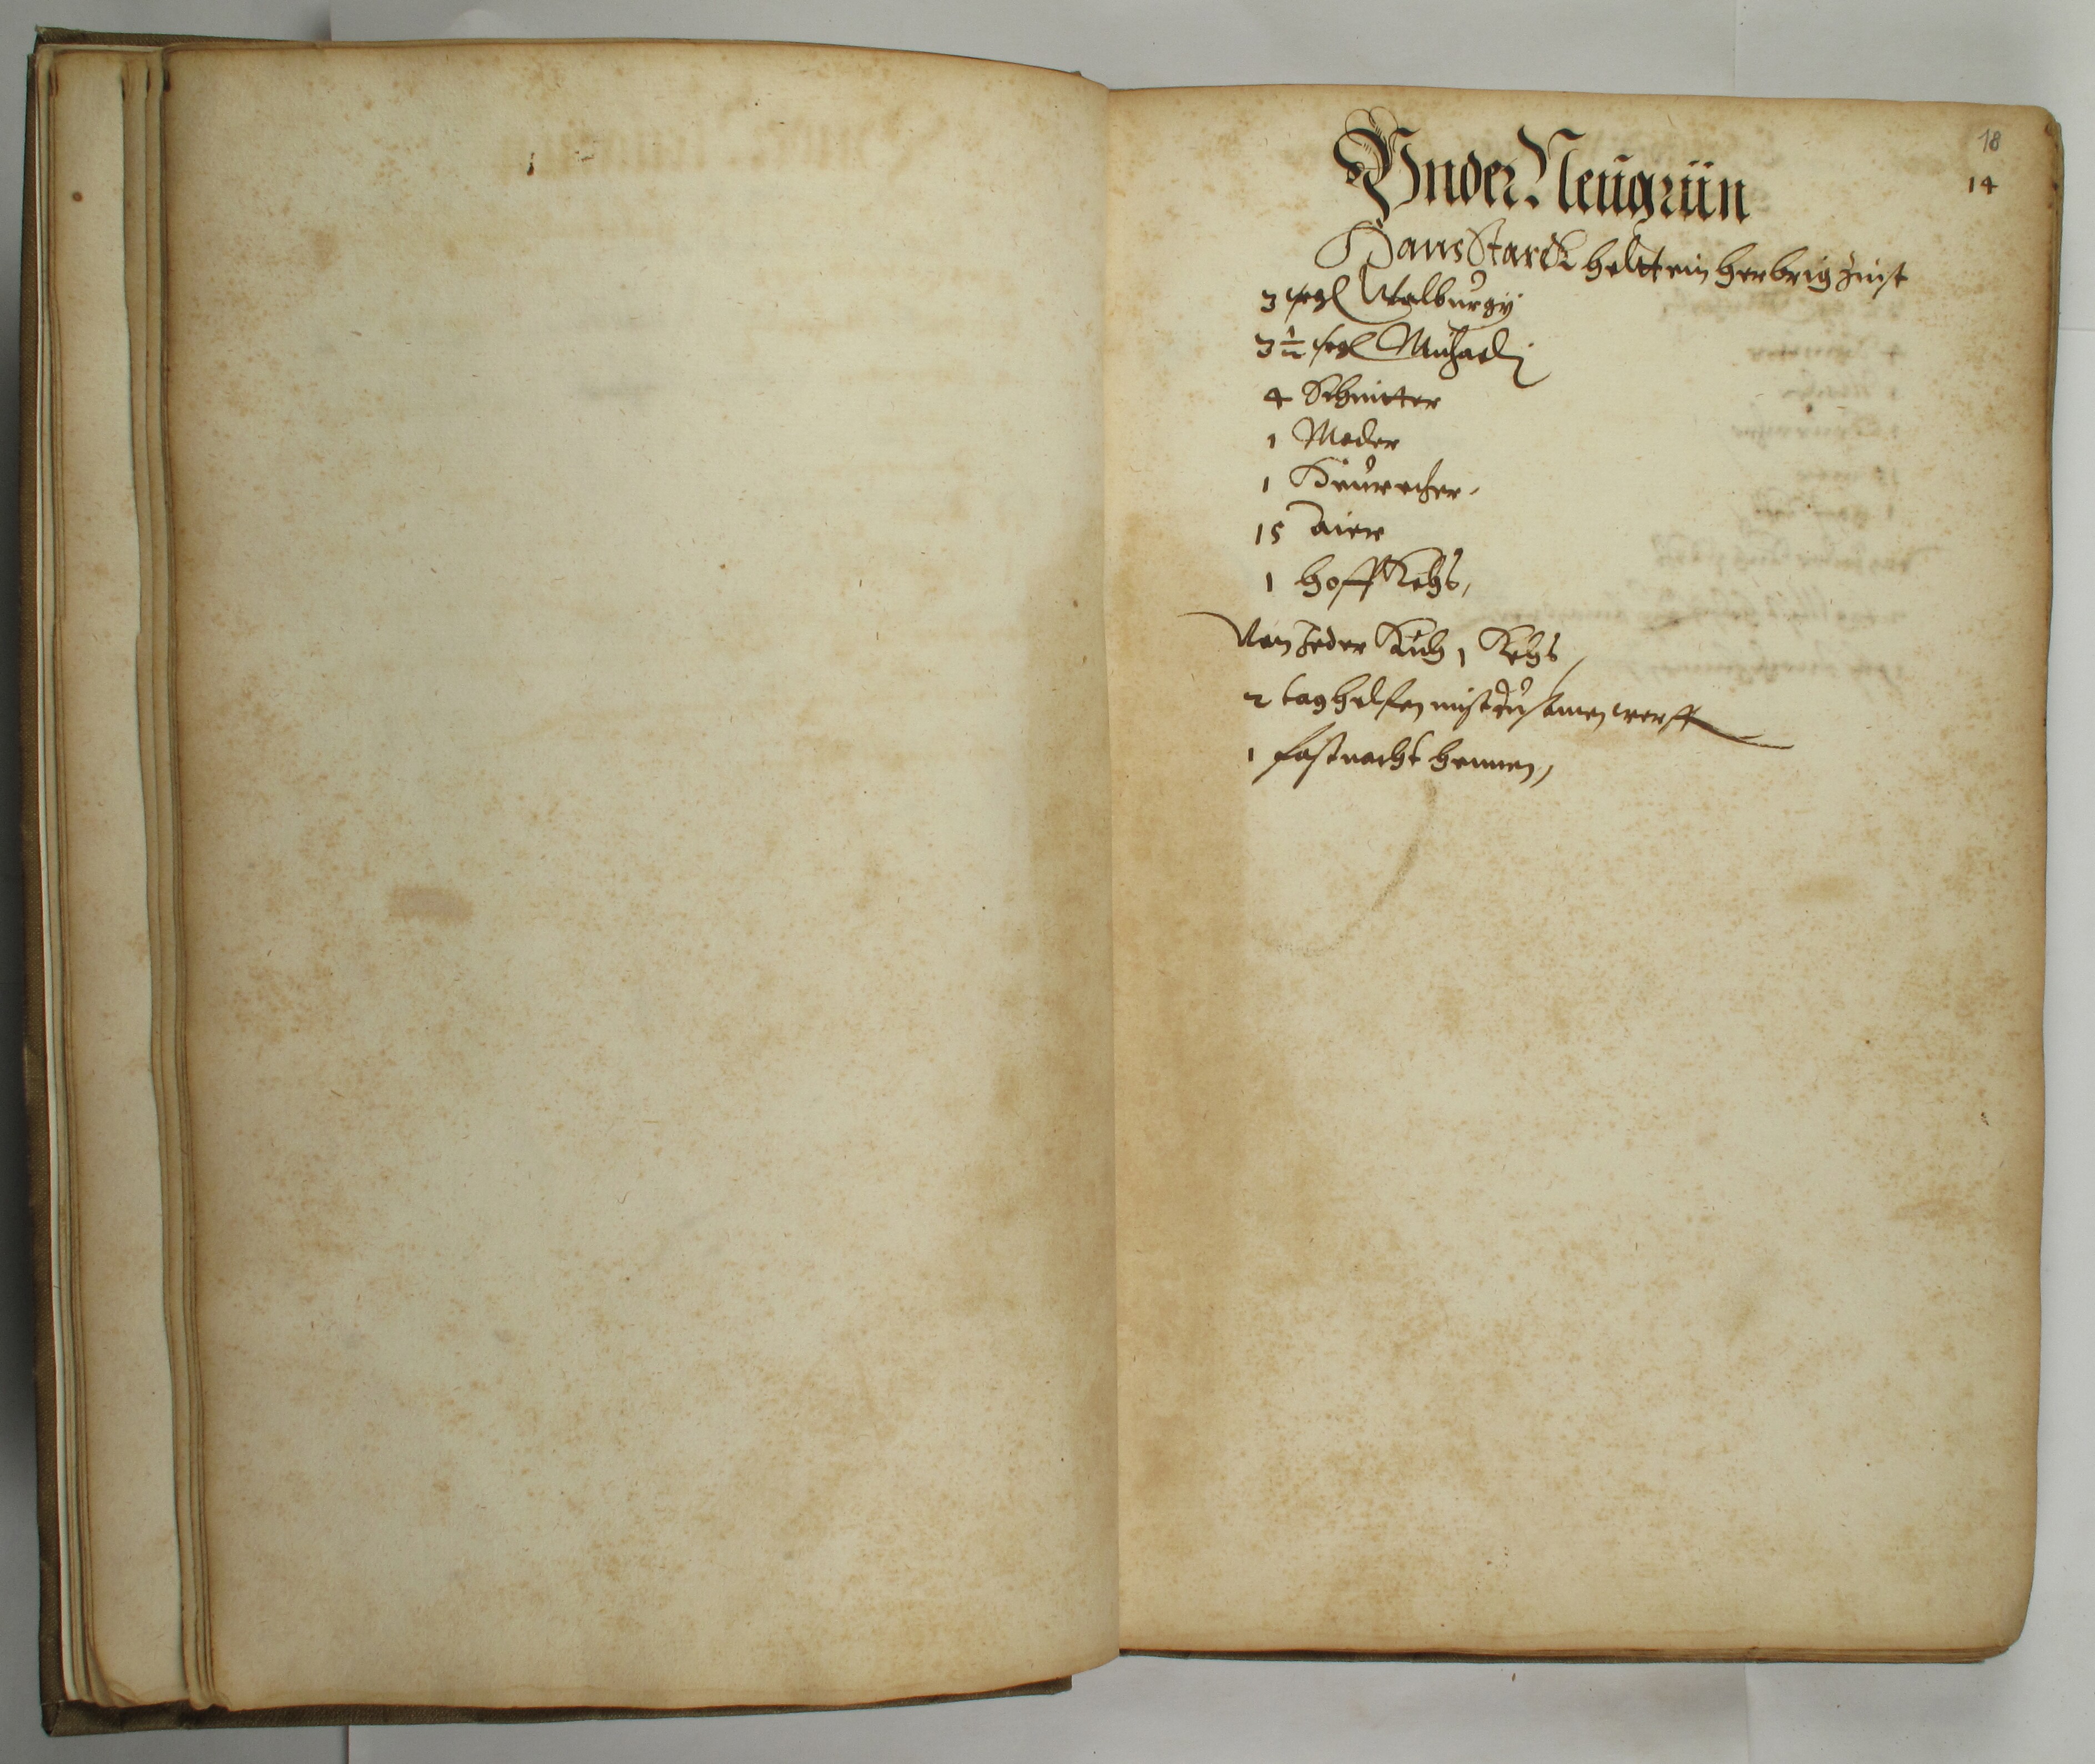 18
14
Vnder Neugrün
Hans Starck helt ein herbrig Zinst
3 ßgl Walburgy
3 ½ ßgl Michaeli
4 Schnitter
1 Mader
1 Heurecher
15 aier
1 hoff Kehs,
Von Jeder Kuh 1 Kehs
2 tag helfen mist zusamen werff
1 fastnacht hennen,